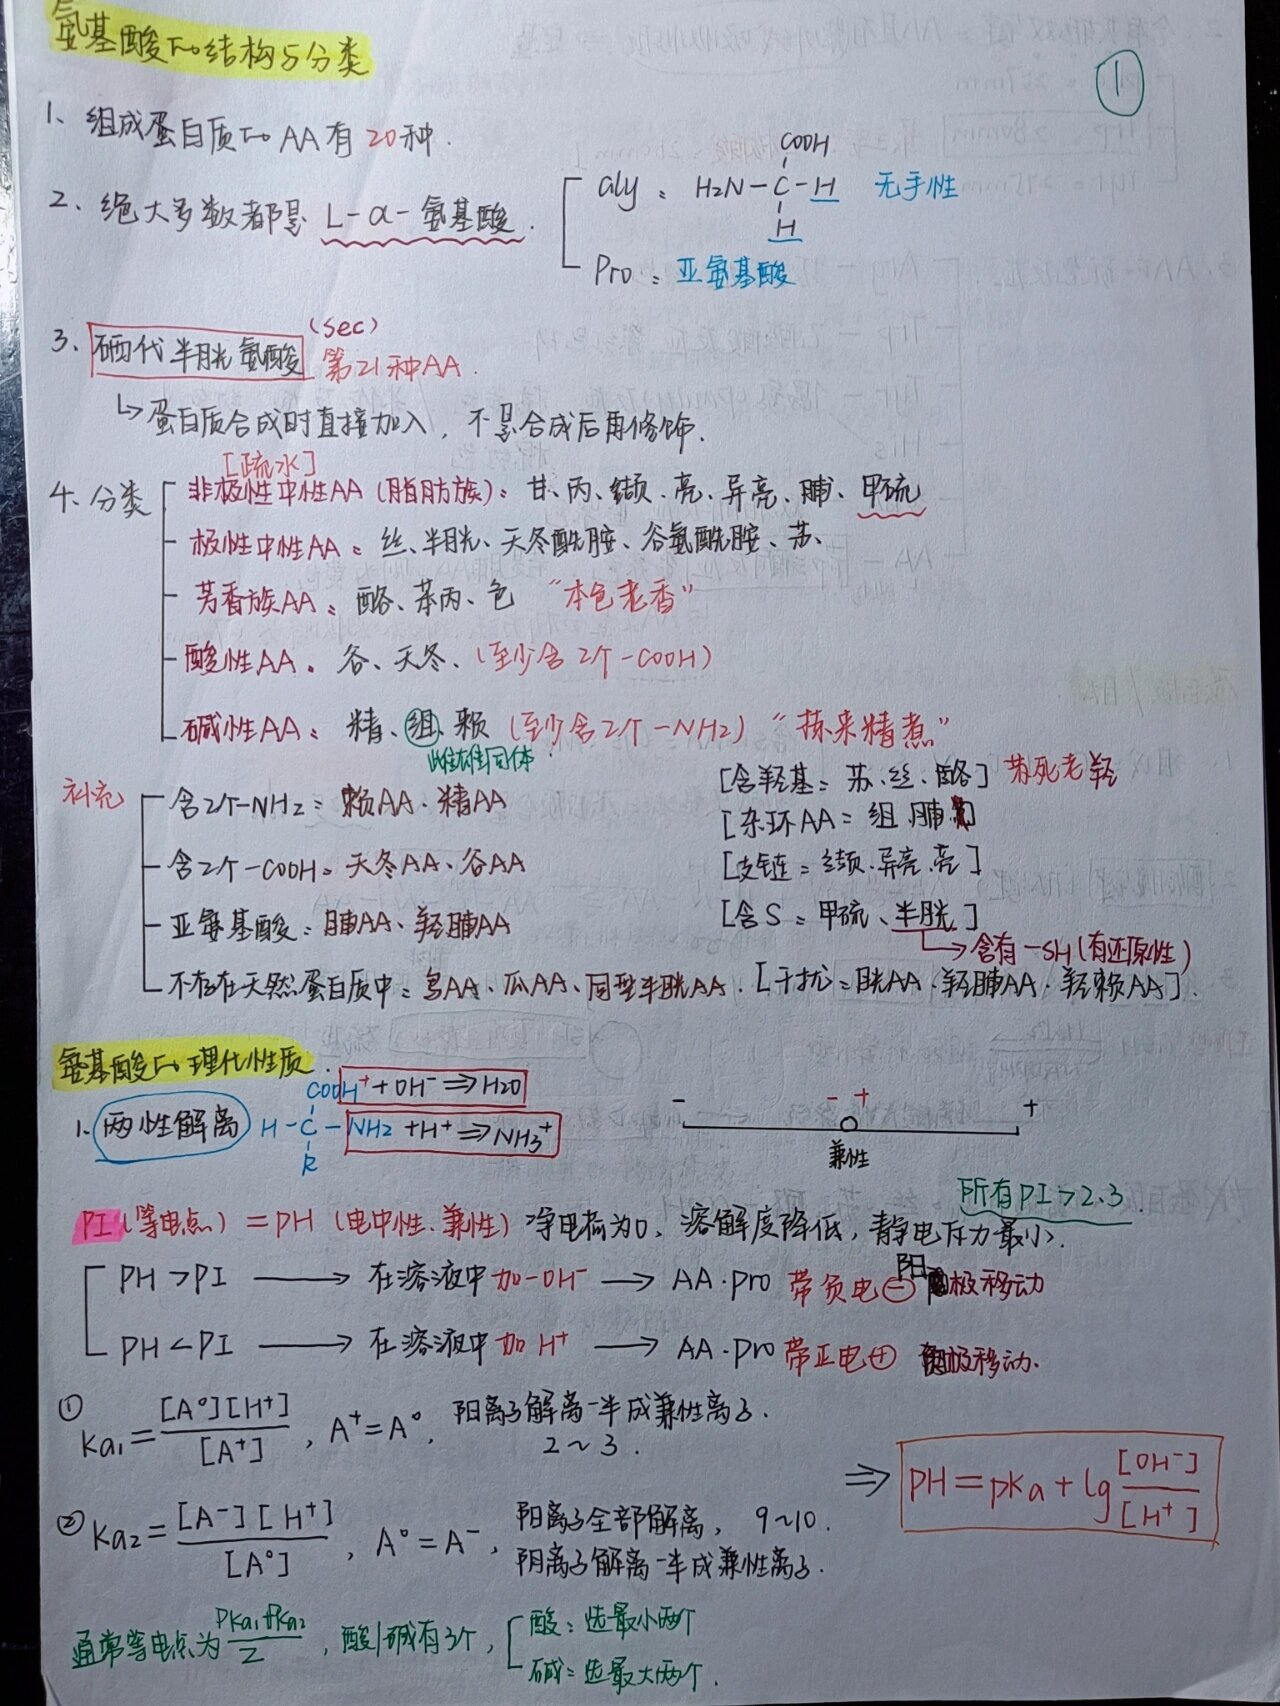 氨基酸的结构与分类
①
1、组成蛋白质的AA有20种.
2、绝大多数都是 L-α-氨基酸.
Gly: H2N-C-H 无手性
COOH
H
Pro: 亚氨基酸
3、硒代半胱氨酸 (sec) 第21种AA.
↳蛋白质合成时直接加入, 不是合成后再修饰.
[疏水]
4、分类 非极性中性AA (脂肪族): 甘、丙、缬、亮、异亮、脯、甲硫
极性中性AA: 丝、半胱、天冬酰胺、谷氨酰胺、苏、
芳香族AA: 酪、苯丙、色 “本色老香”
酸性AA. 谷、天冬、(至少含2个-COOH)
碱性AA: 精、组、赖 (至少含2个-NH2) “拣来精煮”
补充 含2个-NH2: 赖AA、精AA
含2个-COOH: 天冬AA、谷AA
亚氨基酸: 脯AA、羟脯AA
不存在天然蛋白质中: 鸟AA、瓜AA、同型半胱AA. [干扰=胱AA、羟脯AA、羟赖AA].
[含羟基= 苏、丝、酪] 苏死老羟
[杂环AA= 组、脯]
[支链= 缬、异亮、亮]
[含S= 甲硫、半胱]
→含有-SH(有还原性)
氨基酸的理化性质.
1. 两性解离
COOH⁺+OH⁻⇒H2O
H-C-NH2+H⁺⇒NH3⁺
R
- - + +
兼性
所有PI>2.3.
PI(等电点) = PH (电中性、兼性) 净电荷为0, 溶解度降低, 静电斥力最小.
PH>PI → 在溶液中加-OH⁻ → AA·pro 带负电⊖ 阳极移动
PH<PI → 在溶液中加H⁺ → AA·pro 带正电⊕ 负极移动.
① Ka1=[A°][H⁺]/[A⁺], A⁺=A°, 阳离子解离一半成兼性离子.
2~3.
⇒ PH=pKa+lg [OH⁻]/[H⁺]
② Ka2=[A⁻][H⁺]/[A°], A°=A⁻, 阳离子全部解离, 9~10.
阴离子解离一半成兼性离子.
通常等电点为 PKa1+PKa2/2, 酸/碱有3个, 酸: 选最小两个
碱= 选最大两个.